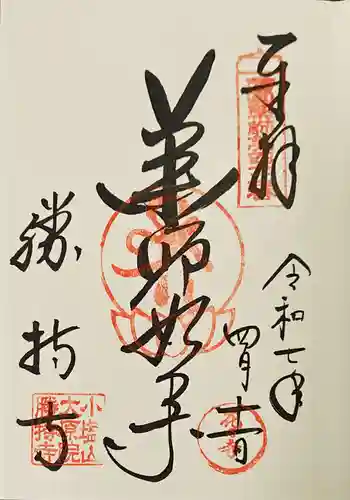 奉拝
令和七年
四月十一日
薬师如来
勝持寺
小塩山
大原院
勝持寺